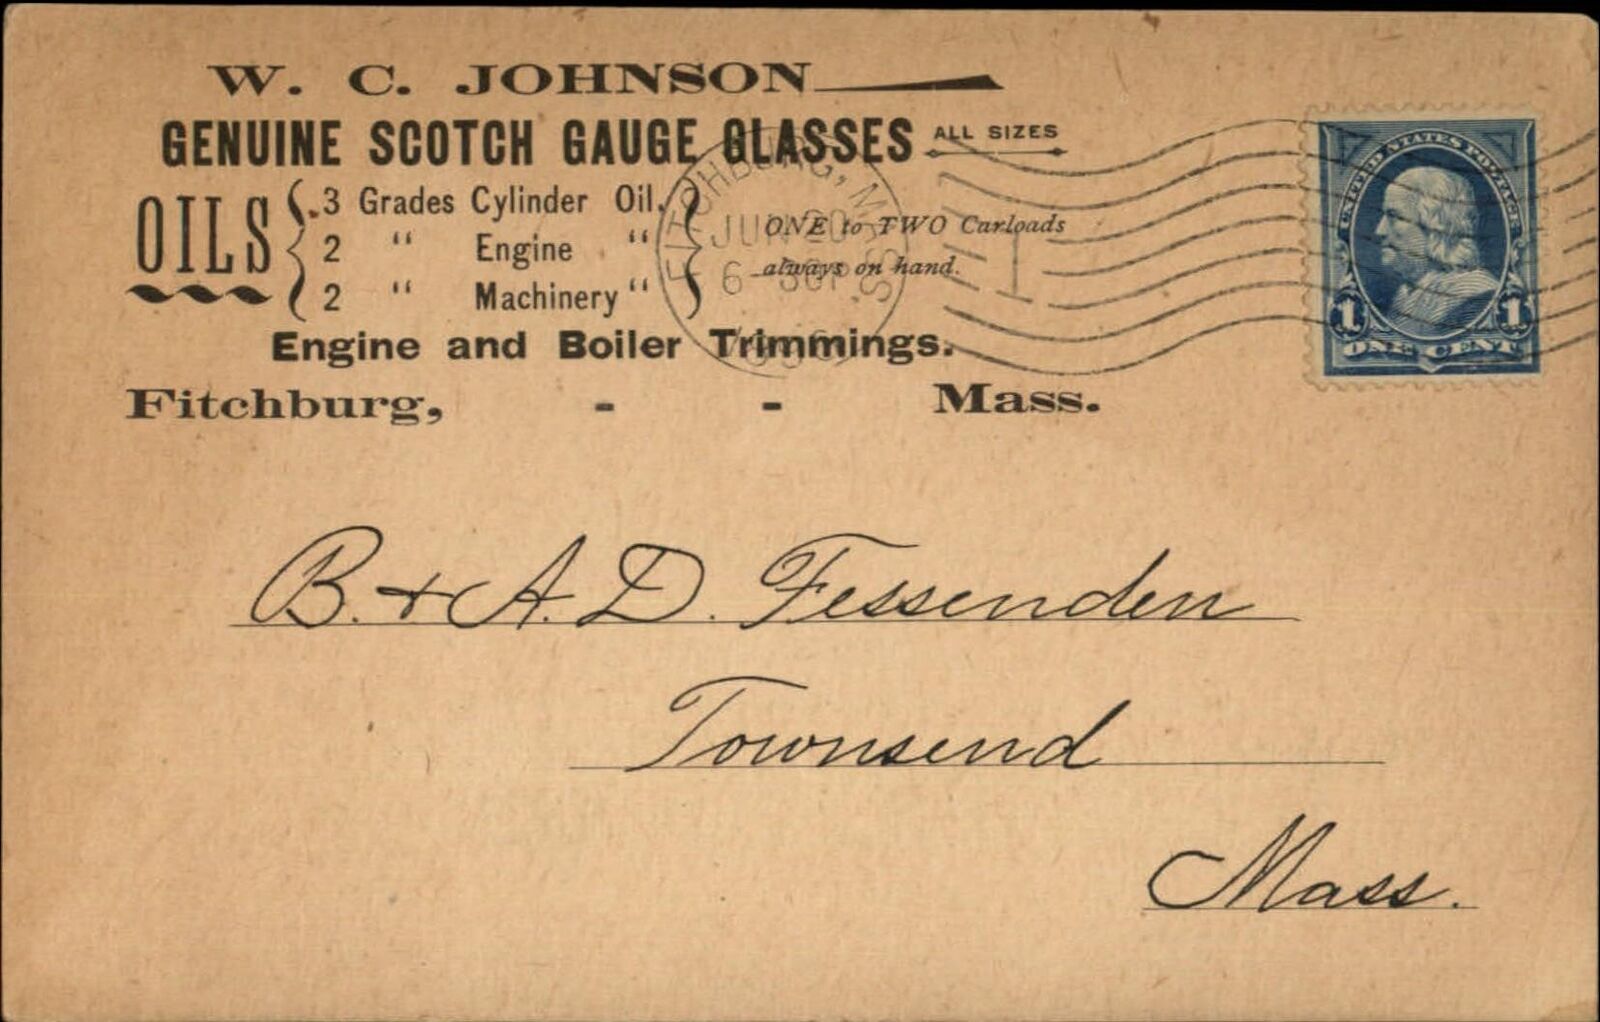 W. C. JOHNSON
GENUINE SCOTCH GAUGE GLASSES ALL SIZES
OILS
3 Grades Cylinder Oil.
2 " Engine "
2 " Machinery "
ONE to TWO Carloads
always on hand.
Engine and Boiler Trimmings.
Fitchburg, - - Mass.
FITCHBURG, MASS.
JUN 20
6-30P
1
UNITED STATES POSTAGE
1 1
ONE CENT
B. & A. D. Fessenden
Townsend
Mass.